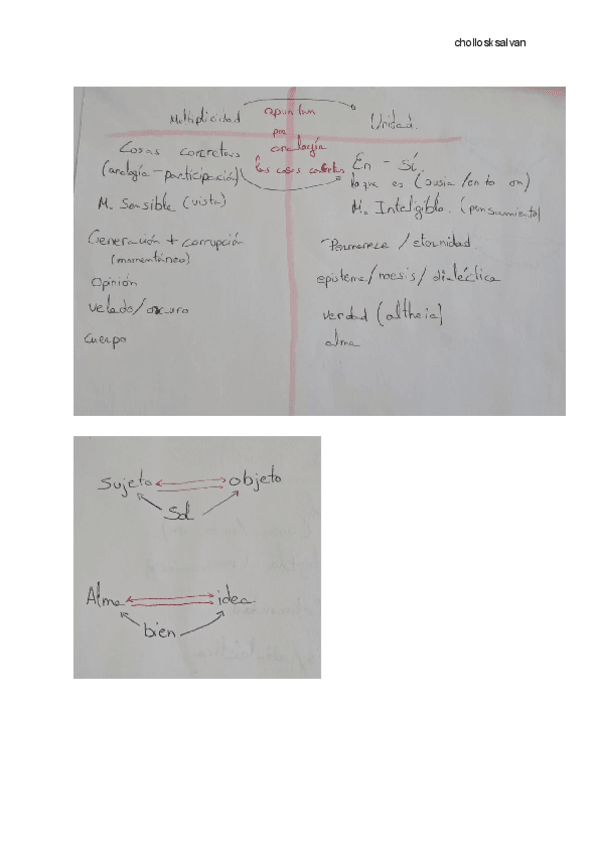 chollosksalvan
Multiplicidad
apuntan
por
analogía
las cosas concretas
Unidad.
Cosas concretas
(analogía-participación)
M. Sensible (vista)
Generación + corrupción
(momentáneo)
Opinión
velado/oscuro
cuerpo
En - sí
lo que es (ousia/onto on)
M. Inteligible. (pensamiento)
Permanece / eternidad.
episteme/noesis/dialéctica
verdad (altheia)
alma
Sujeto objeto
Sol
Alma idea
bien